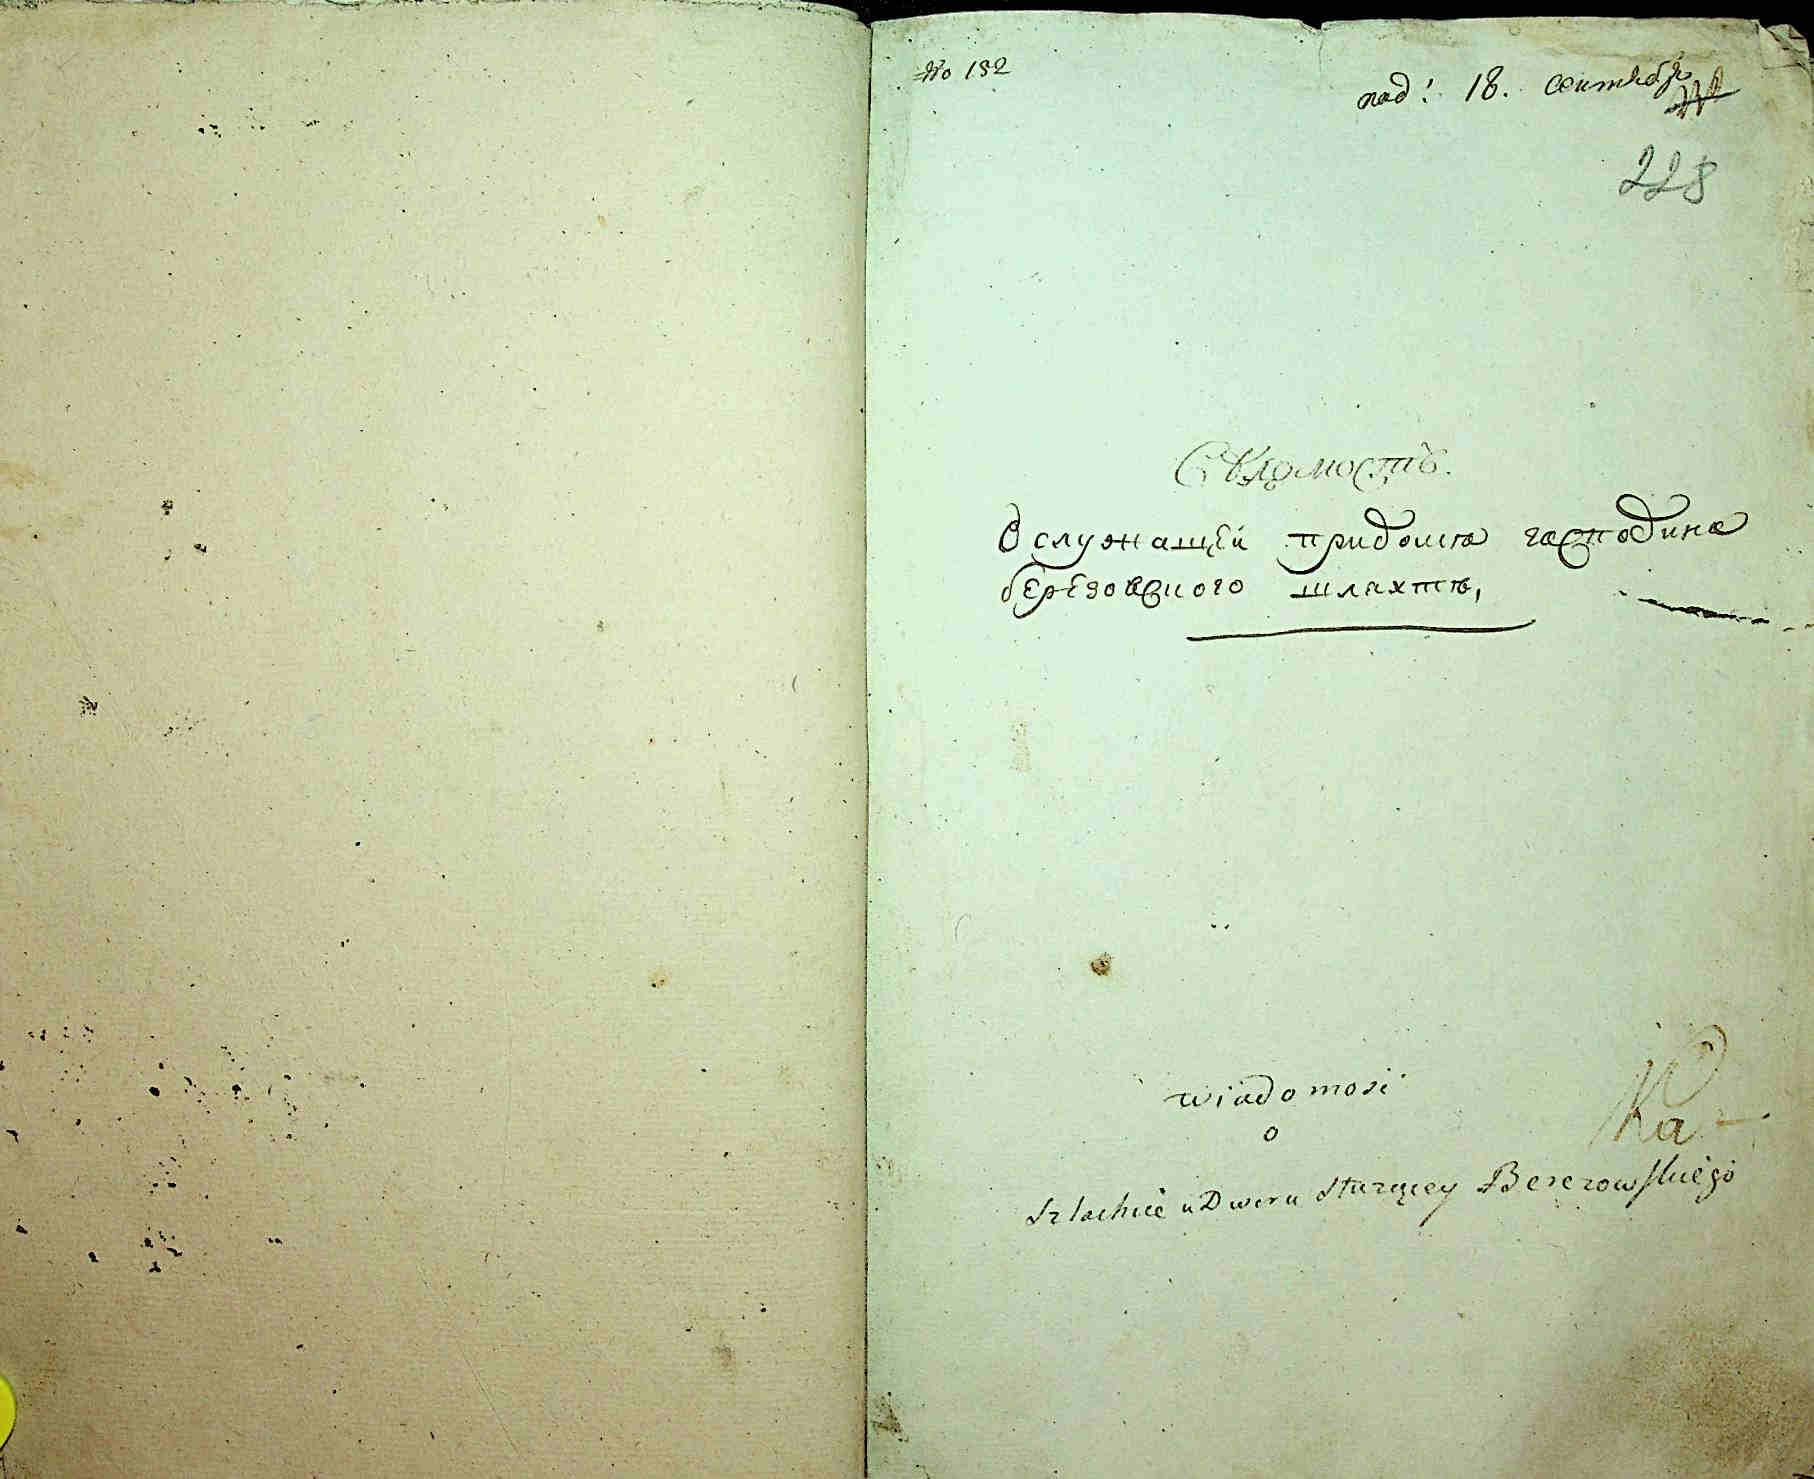 No 132
под: 18. сентября
228
Вѣдомость.
О служащей придомѣ господина
березовского шляхтѣ,
Wiadomość
o
Szlachcie u Dworu służącey Berezowskiego